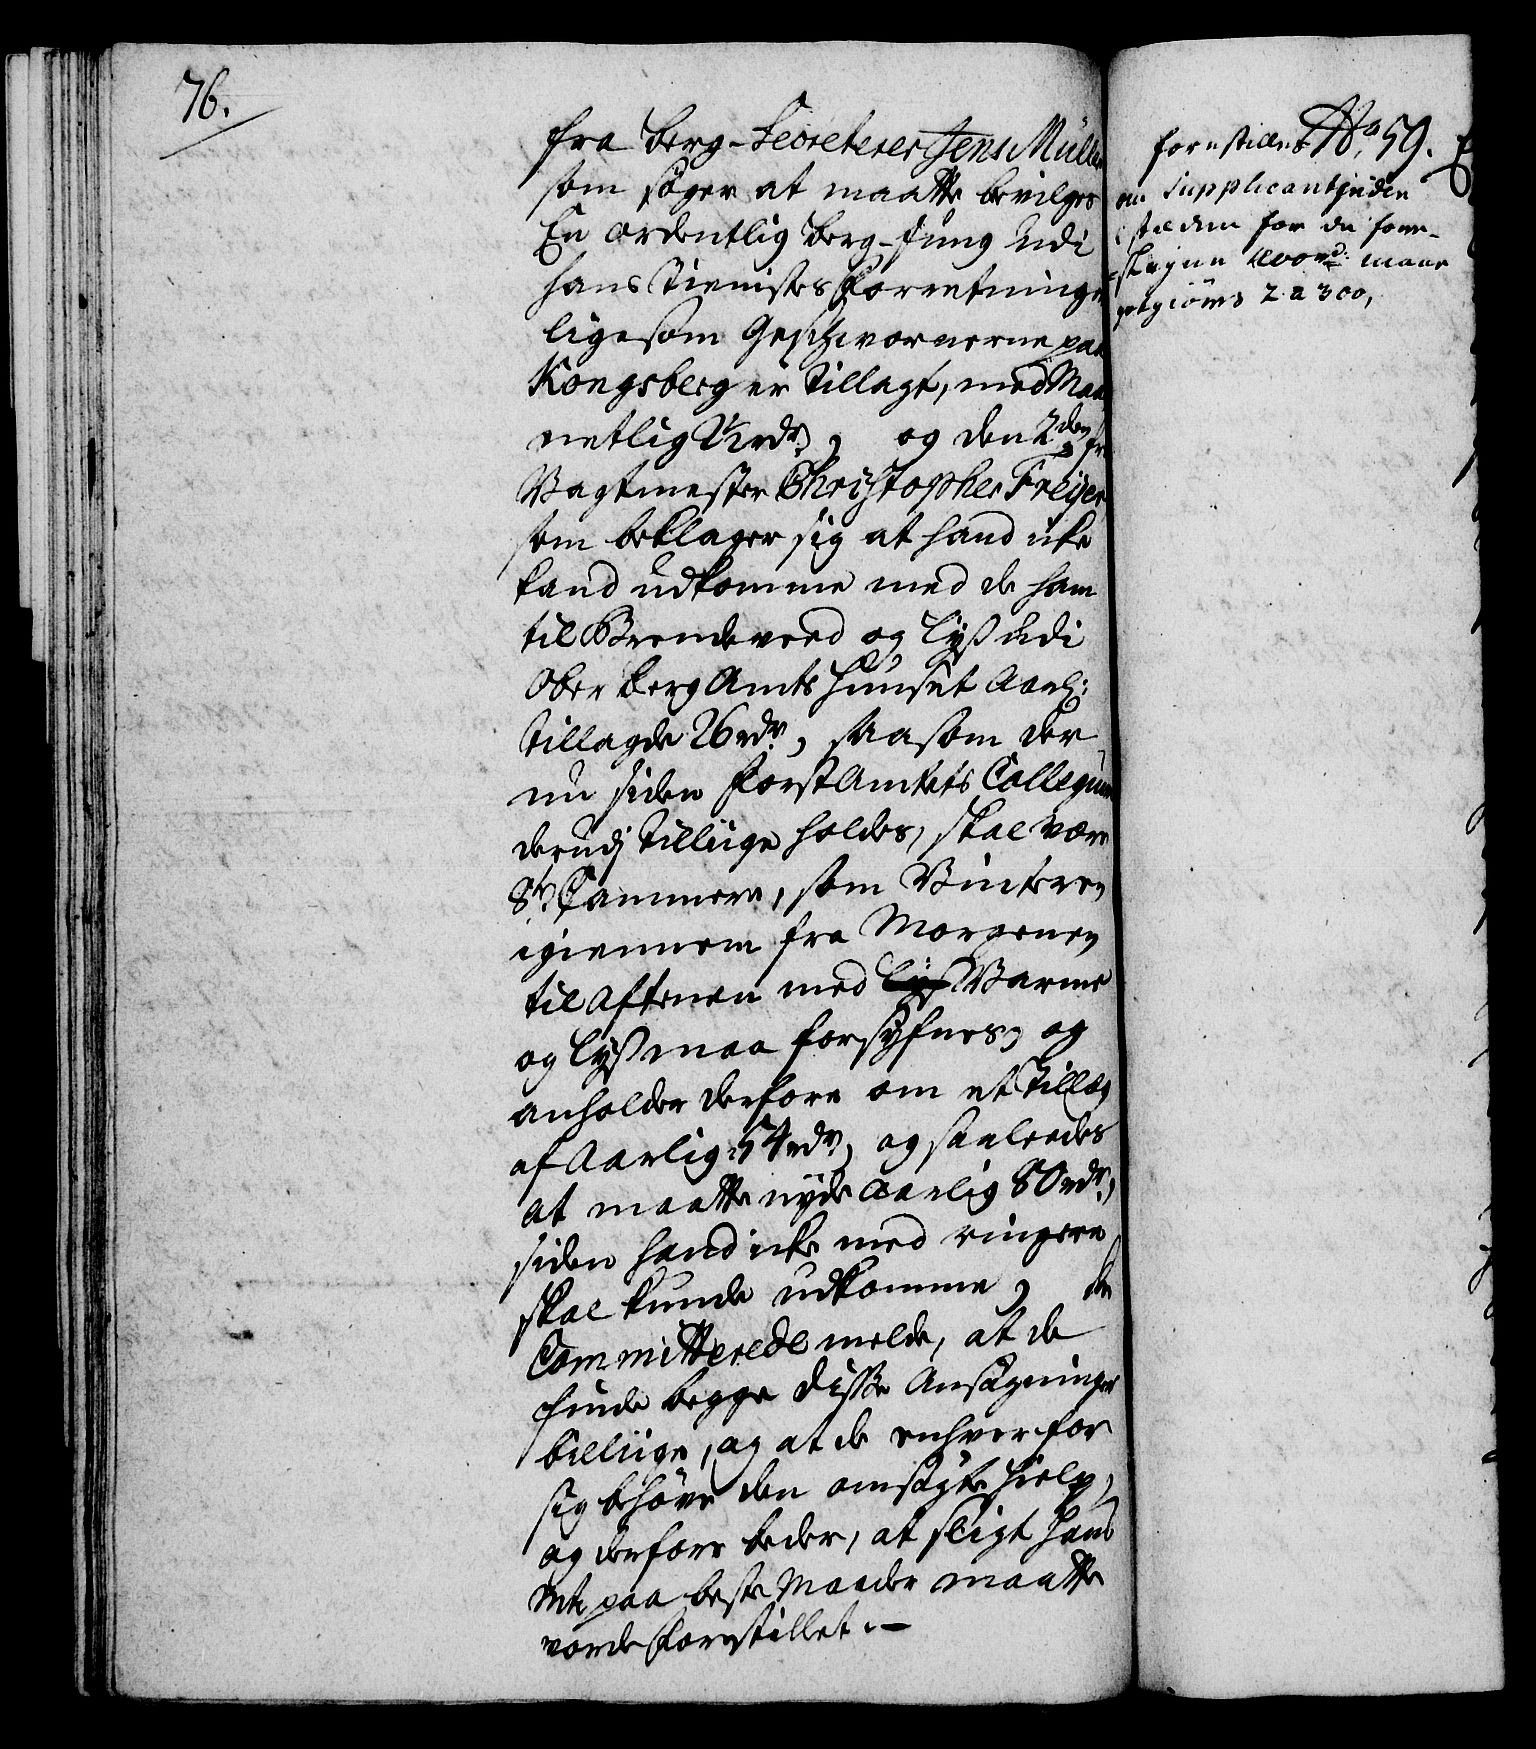 76.
fra Berg-Secreterer Jens Müller
som søger at maatte bevilges
En ordentlig Berg-Junge udi
hans Tienistes Forretninger
ligesom Geschwornerne paa
Kongsberg er tillagt, med Maa
netlig 2½ rdr, og den 2den fra
Vagtmester Christopher Freyer
som beklager sig at hand icke
kand udkomme med de ham
til Brendeveed og Lyss udi
Ober Berg Amts Huuset Aarl:
tillagde 26 rdr, saasom der
nu siden Forst Amtets Collegium
derudj tilliige holdes, skal være
8te Cammere, som Vinteren
igiennem fra Morgenen
til Aftenen med Varme
og Lyss maa forsyfnes, og
anholder derfore om et Tillæg
af Aarlig 54 rdr, og saaleedes
at maatte nyde aarlig 80 rdr,
siden hand icke med ringere
skal kunde udkomme, de
Committerede melde, at de
finde begge disse Ansøgninger
billiige, og at de enhver for
sig behøve den ansøgte Hielp,
og derfore beder, at sligt Hans
Mt: paa beste Maader maatte
vorde forestillet. —
No 59.
forestilles
Supplicant
for de fore-
maae
2 a 300,